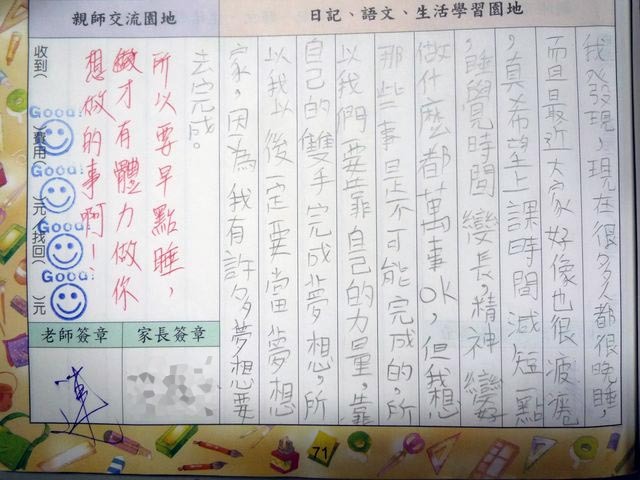 日記、語文、生活學習園地
我發現，現在很多人都很晚睡，
而且最近大家好像也很疲倦
，真希望上課時間減短一點
，睡覺時間變長，精神變好
做什麼都萬事OK，但我想
那些事是不可能完成的，所
以我們要靠自己的力量，靠
自己的雙手完成夢想，所
以我以後一定要當夢想
家，因為我有許多夢想要
去完成。
親師交流園地
所以要早點睡，
才有體力做你
想做的事啊！
收到( )費用( )元(找回( )元
Good!
Good!
Good!
Good!
家長簽章
老師簽章
71